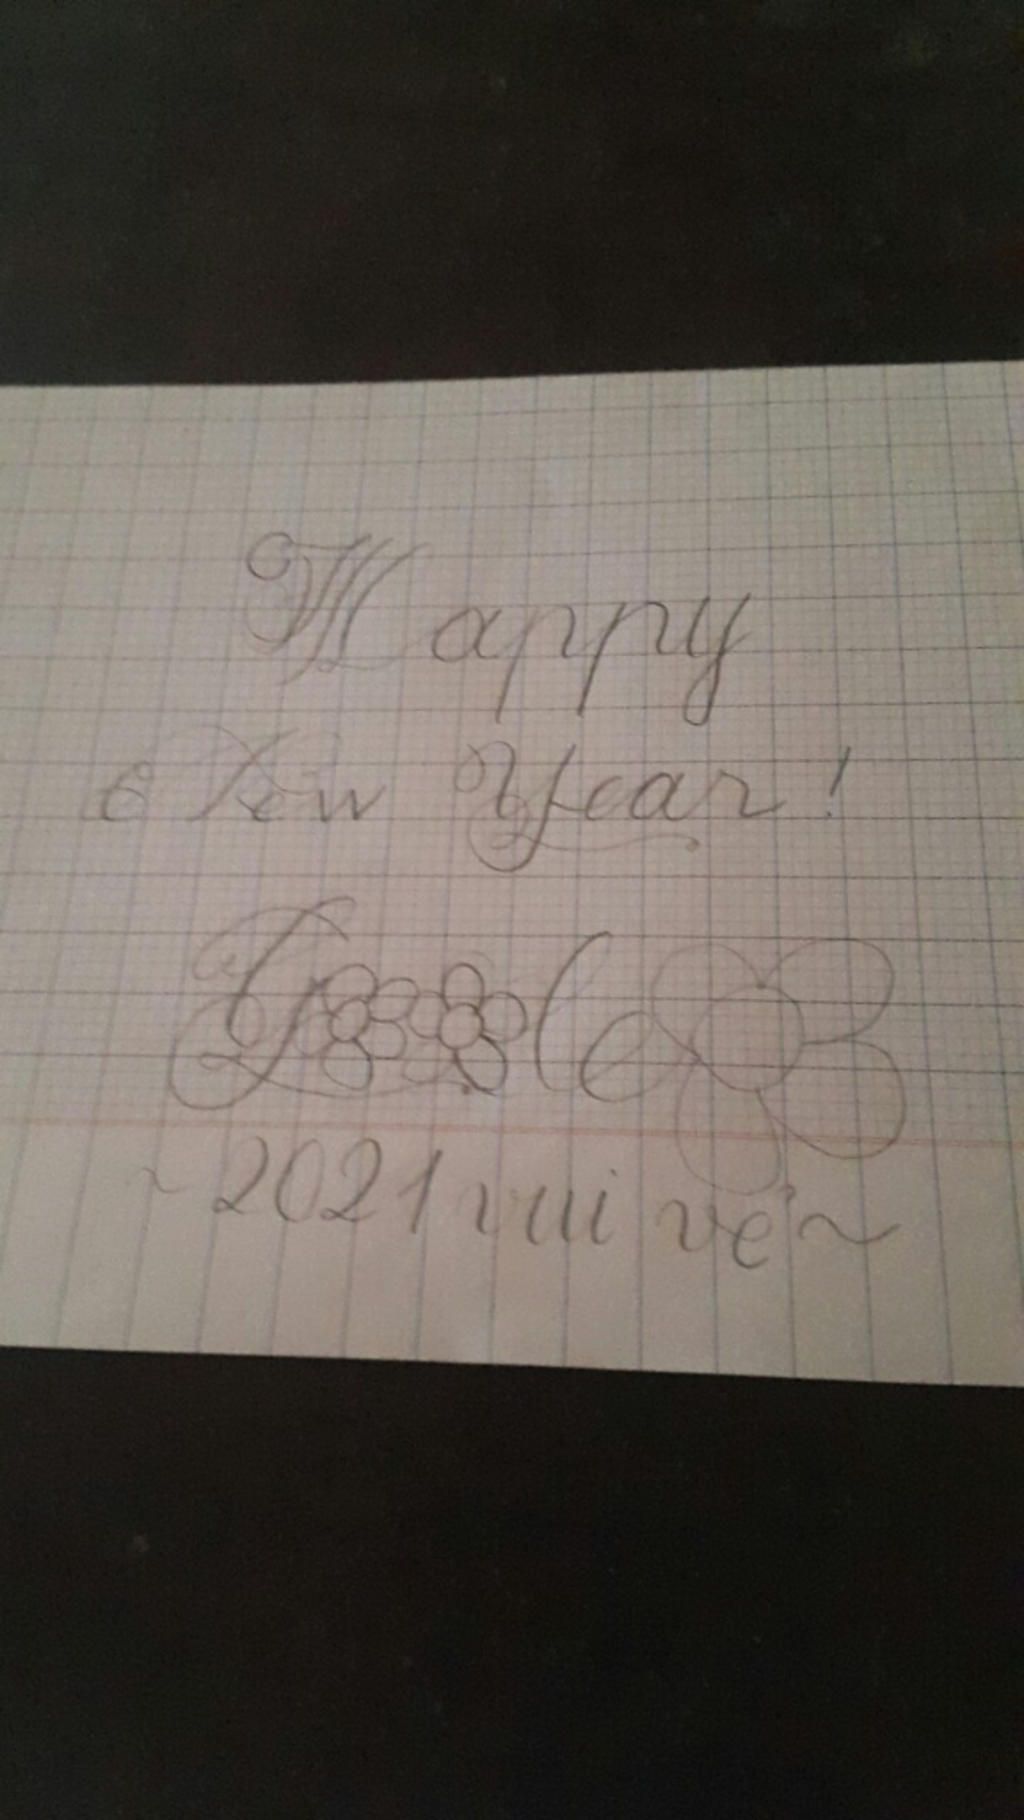 Happy
New Year!
~2021 vui vẻ~